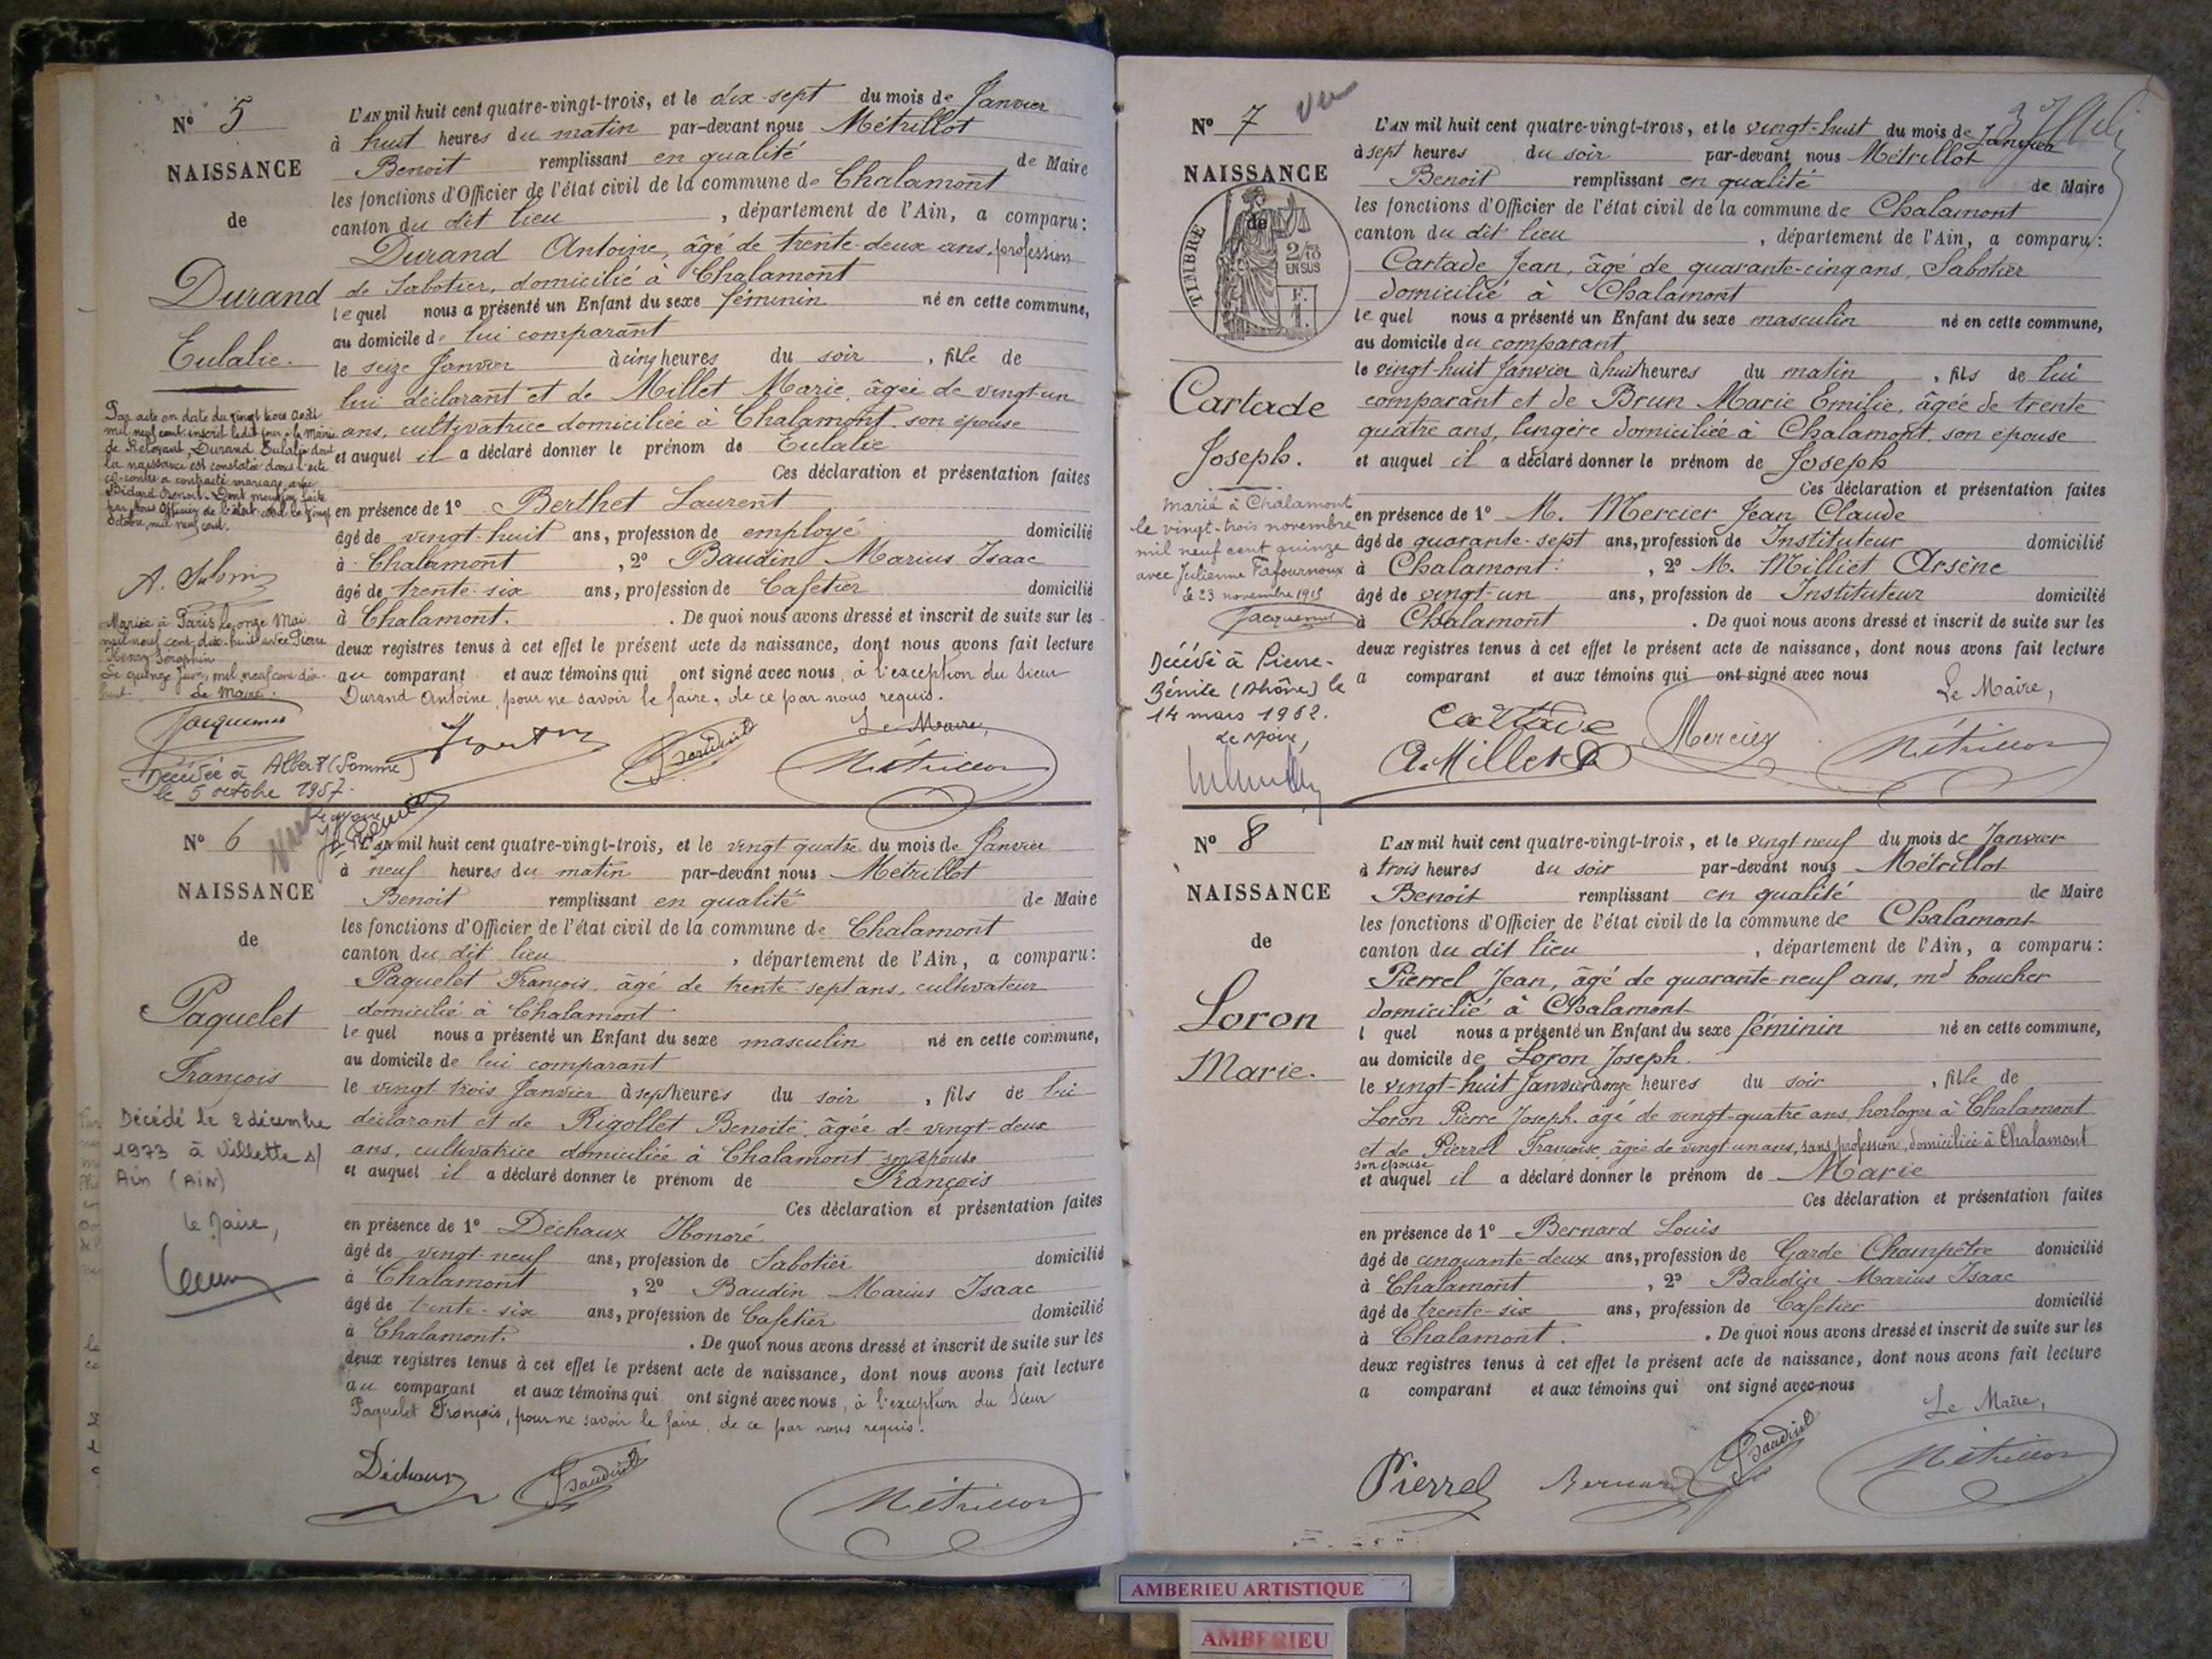 N° 5
NAISSANCE
de
Durand
Eulalie.
Par acte en date du vingt trois août
mil neuf cent inscrit ledit jour à la Mairie
de Durand Eulalie dont
la naissance est constatée dans l'acte
ci-contre a contracté mariage avec
Bidard Benoit. Dont mention faite
par nous Officier de l'état civil ce vingt
octobre mil neuf cent.
Mariée à Paris le onze Mai
mil neuf cent dix-huit avec Pierre
Henry Séraphin
Le quinze Juin mil neuf cent dix-
huit. Le Maire.
Jacquemin
Décédée à Albert (Somme)
le 5 octobre 1957.
L'AN mil huit cent quatre-vingt-trois, et le dix-sept du mois de Janvier
à huit heures du matin par-devant nous Métrillot
Benoit remplissant en qualité de Maire
les fonctions d'Officier de l'état civil de la commune de Chalamont
canton du dit lieu , département de l'Ain, a comparu:
Durand Antoine, âgé de trente-deux ans, profession
de Sabotier, domicilié à Chalamont
lequel nous a présenté un Enfant du sexe féminin né en cette commune,
au domicile de lui comparant
le seize Janvier à cinq heures du soir , fille de
lui déclarant et de Millet Marie, âgée de vingt-un
ans, cultivatrice domiciliée à Chalamont, son épouse
et auquel il a déclaré donner le prénom de Eulalie
Ces déclaration et présentation faites
en présence de 1° Berthet Laurent
âgé de vingt-huit ans, profession de employé domicilié
à Chalamont , 2° Baudin Marius Isaac
âgé de trente-six ans, profession de Cafetier domicilié
à Chalamont. . De quoi nous avons dressé et inscrit de suite sur les
deux registres tenus à cet effet le présent acte de naissance, dont nous avons fait lecture
au comparant et aux témoins qui ont signé avec nous, à l'exception du Sieur
Durand Antoine, pour ne savoir le faire, de ce par nous requis.
Le Maire,
Baudin Métrillot
N° 6
NAISSANCE
de
Paquelet
François
Décédé le 2 décembre
1973 à Villette s/
Ain (AIN)
le Maire,
L'AN mil huit cent quatre-vingt-trois, et le vingt quatre du mois de Janvier
à neuf heures du matin par-devant nous Métrillot
Benoit remplissant en qualité de Maire
les fonctions d'Officier de l'état civil de la commune de Chalamont
canton du dit lieu , département de l'Ain, a comparu:
Paquelet François, âgé de trente-sept ans, cultivateur
domicilié à Chalamont
lequel nous a présenté un Enfant du sexe masculin né en cette commune,
au domicile de lui comparant
le vingt trois Janvier à sept heures du soir , fils de lui
déclarant et de Rigollet Benoite, âgée de vingt-deux
ans, cultivatrice domiciliée à Chalamont, son épouse
et auquel il a déclaré donner le prénom de François
Ces déclaration et présentation faites
en présence de 1° Déchaux Honoré
âgé de vingt-neuf ans, profession de Sabotier domicilié
à Chalamont , 2° Baudin Marius Isaac
âgé de trente-six ans, profession de Cafetier domicilié
à Chalamont. . De quoi nous avons dressé et inscrit de suite sur les
deux registres tenus à cet effet le présent acte de naissance, dont nous avons fait lecture
au comparant et aux témoins qui ont signé avec nous, à l'exception du Sieur
Paquelet François, pour ne savoir le faire, de ce par nous requis.
Déchaux Baudin Métrillot
N° 7 Vu
NAISSANCE
de
TIMBRE
2/10
EN SUS
F.
1.
Cartade
Joseph.
marié à Chalamont
le vingt-trois novembre
mil neuf cent quinze
avec Julienne Fafournoux
le 23 novembre 1915
Jacquemin
Décédé à Pierre-
Bénite (Rhône) le
14 mars 1962.
Le Maire,
L'AN mil huit cent quatre-vingt-trois, et le vingt-huit du mois de Janvier
à sept heures du soir par-devant nous Métrillot
Benoit remplissant en qualité de Maire
les fonctions d'Officier de l'état civil de la commune de Chalamont
canton du dit lieu , département de l'Ain, a comparu:
Cartade Jean, âgé de quarante-cinq ans, Sabotier
domicilié à Chalamont
lequel nous a présenté un Enfant du sexe masculin né en cette commune,
au domicile du comparant
le vingt-huit Janvier à huit heures du matin , fils de lui
comparant et de Brun Marie Emilie, âgée de trente
quatre ans, lingère domiciliée à Chalamont, son épouse
et auquel il a déclaré donner le prénom de Joseph
Ces déclaration et présentation faites
en présence de 1° M. Mercier Jean Claude
âgé de quarante-sept ans, profession de Instituteur domicilié
à Chalamont , 2° M. Milliet Arsène
âgé de vingt-un ans, profession de Instituteur domicilié
à Chalamont . De quoi nous avons dressé et inscrit de suite sur les
deux registres tenus à cet effet le présent acte de naissance, dont nous avons fait lecture
a comparant et aux témoins qui ont signé avec nous
Le Maire,
Cartade Mercier Métrillot
A. Milliet
N° 8
NAISSANCE
de
Loron
Marie.
L'AN mil huit cent quatre-vingt-trois, et le vingt neuf du mois de Janvier
à trois heures du soir par-devant nous Métrillot
Benoit remplissant en qualité de Maire
les fonctions d'Officier de l'état civil de la commune de Chalamont
canton du dit lieu , département de l'Ain, a comparu:
Pierrel Jean, âgé de quarante-neuf ans, md boucher
domicilié à Chalamont
l quel nous a présenté un Enfant du sexe féminin né en cette commune,
au domicile de Loron Joseph.
le vingt-huit Janvier à onze heures du soir , fille de
Loron Pierre Joseph, âgé de vingt-quatre ans, horloger à Chalamont
et de Pierrel Françoise, âgée de vingt un ans, sans profession, domiciliée à Chalamont
son épouse
et auquel il a déclaré donner le prénom de Marie
Ces déclaration et présentation faites
en présence de 1° Bernard Louis
âgé de cinquante-deux ans, profession de Garde Champêtre domicilié
à Chalamont , 2° Baudin Marius Isaac
âgé de trente-six ans, profession de Cafetier domicilié
à Chalamont. . De quoi nous avons dressé et inscrit de suite sur les
deux registres tenus à cet effet le présent acte de naissance, dont nous avons fait lecture
a comparant et aux témoins qui ont signé avec nous
Le Maire,
Pierrel Bernard Baudin Métrillot
AMBERIEU ARTISTIQUE
AMBERIEU